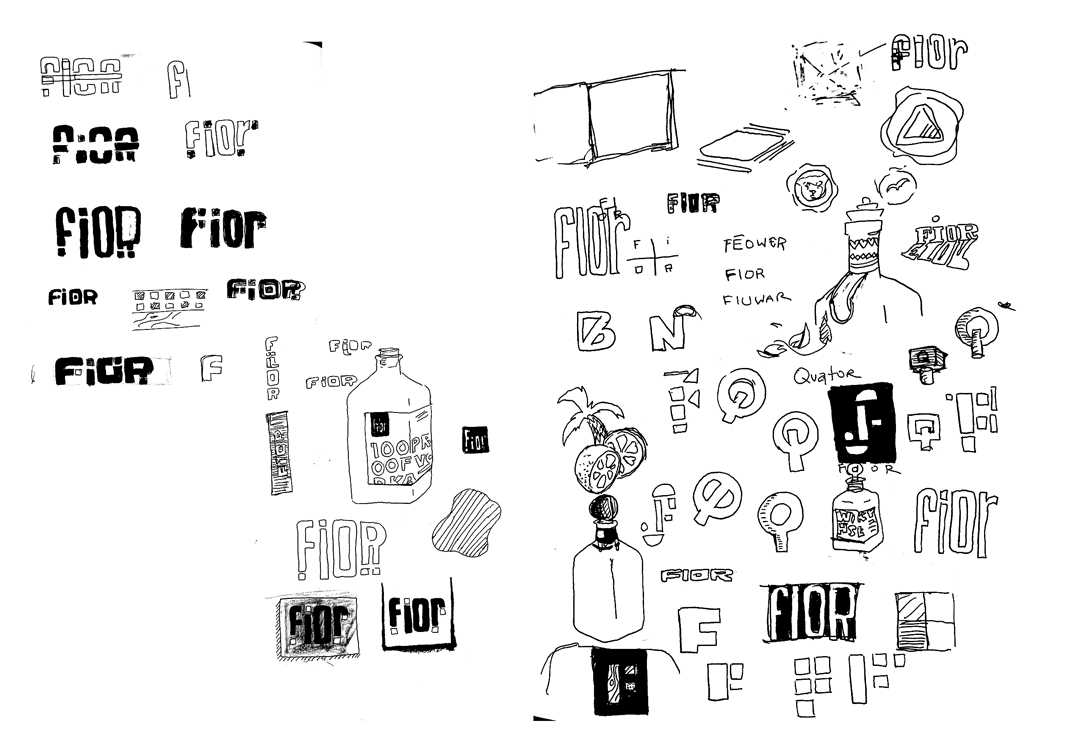 FIOR
fi
FIOR
fior
FIOR
fior
FIOR
FIOR
FIOR
F
FIOR
FIOR
FIOR
FIOR
FIOR
100PR
OOFVO
DKA
FIOR
FIOR
FIOR
FIOR
fior
fior
FIOR
F I
O R
FEOWER
FIOR
FIUWAR
FIOR
B
N
Q
Quator
Q
Q
Q
Q
F
FOOR
fior
FIOR
F
FIOR
F
F